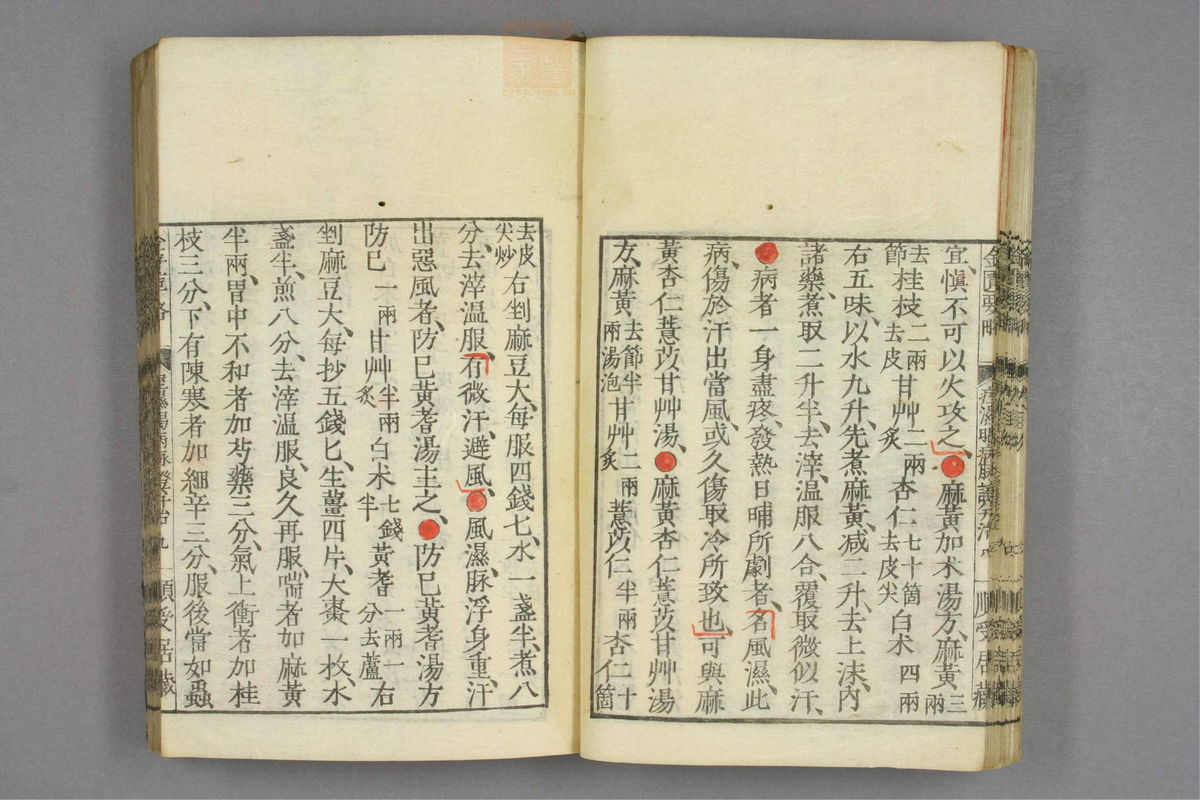 金匱要略
宜、慎不可以火攻之、麻黃加朮湯方、麻黃三兩
去節桂枝二兩去皮甘艸二兩炙杏仁七十箇去皮尖白朮四兩
右五味、以水九升、先煮麻黃、减二升、去上沫、內
諸藥、煮取二升半、去滓、溫服八合、覆取微似汗、
病者一身盡疼、發熱日晡所劇者、名風濕、此
病、傷於汗出當風、或久傷取冷所致也、可與麻
黃杏仁薏苡甘艸湯、麻黃杏仁薏苡甘艸湯
方、麻黃去節半兩湯泡甘艸二兩炙薏苡仁半兩杏仁十箇
去皮尖炒右剉麻豆大、每服四錢匕、水一盞半、煮八
分、去滓溫服、有微汗、避風、風濕、脉浮身重、汗
出惡風者、防巳黃耆湯主之、防巳黃耆湯方
防巳一兩甘艸半兩炙白朮七錢半黃耆一兩一分去蘆右
剉麻豆大、每抄五錢匕、生薑四片、大棗一枚、水
盞半、煎八分、去滓溫服、良久再服、喘者加麻黃
半兩、胃中不和者加芍藥三分、氣上衝者加桂
枝三分、下有陳寒者加細辛三分、服後當如蟲